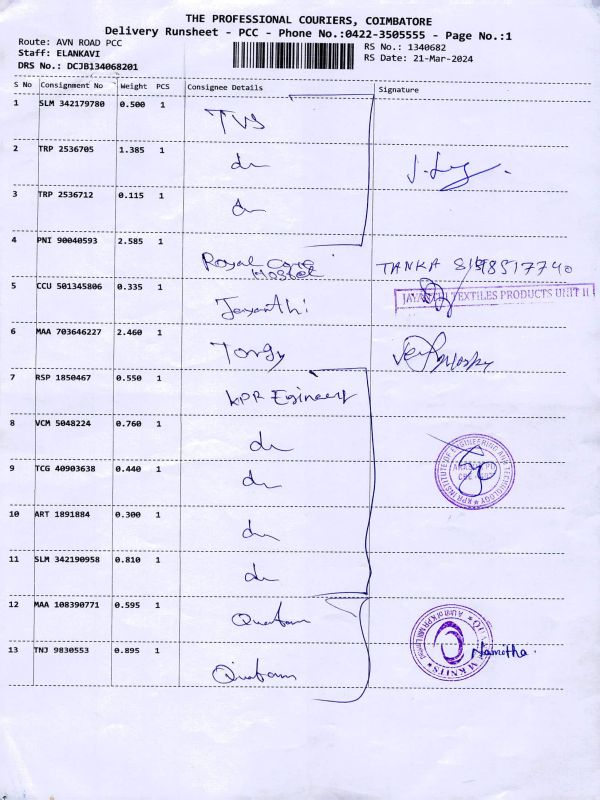 THE PROFESSIONAL COURIERS, COIMBATORE
Delivery Runsheet - PCC - Phone No.:0422-3505555 - Page No.:1
Route: AVN ROAD PCC
Staff: ELANKAVI
DRS No.: DCJB134068201
RS No.: 1340682
RS Date: 21-Mar-2024
S No Consignment No Weight PCS Consignee Details Signature
1 SLM 342179780 0.500 1 TVS
2 TRP 2536705 1.385 1 do
3 TRP 2536712 0.115 1 do
4 PNI 90040593 2.585 1 Royal Care Hostel TANKA
5 CCU 501345806 0.335 1 Jayanthi JAYANTHI TEXTILES PRODUCTS UNIT II
6 MAA 703646227 2.460 1
7 RSP 1850467 0.550 1 KPR Egineers
8 VCM 5048224 0.760 1 do
9 TCG 40903638 0.440 1 do
KPR INSTITUTE OF ENGINEERING AND TECHNOLOGY
10 ART 1891884 0.300 1 do
11 SLM 342190958 0.810 1 do
12 MAA 108390771 0.595 1 Quantum
13 TNJ 9830553 0.895 1 Quantum Namitha.